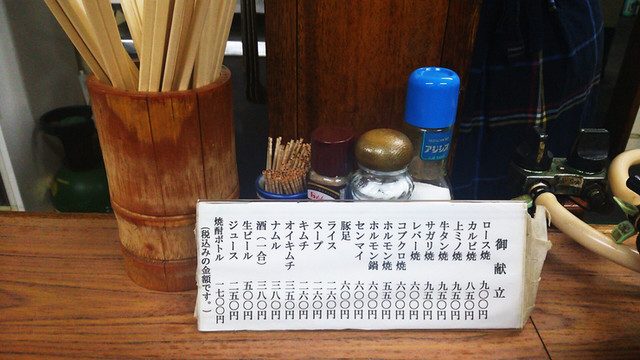 御献立
ロース焼 九〇〇円
カルビ焼 八五〇円
上ミノ焼 九五〇円
牛タン焼 九五〇円
サガリ焼 九五〇円
レバー焼 六〇〇円
コブクロ焼 六〇〇円
ホルモン焼 五五〇円
ホルモン鍋 六〇〇円
センマイ 六〇〇円
豚足 六〇〇円
ライス 二六〇円
スープ 二六〇円
キムチ 二六〇円
オイキムチ 三五〇円
ナムル 三八〇円
酒(一合) 三八〇円
生ビール 五〇〇円
ジュース 二五〇円
焼酎ボトル 一七〇〇円
(税込みの金額です。)
アジシオ